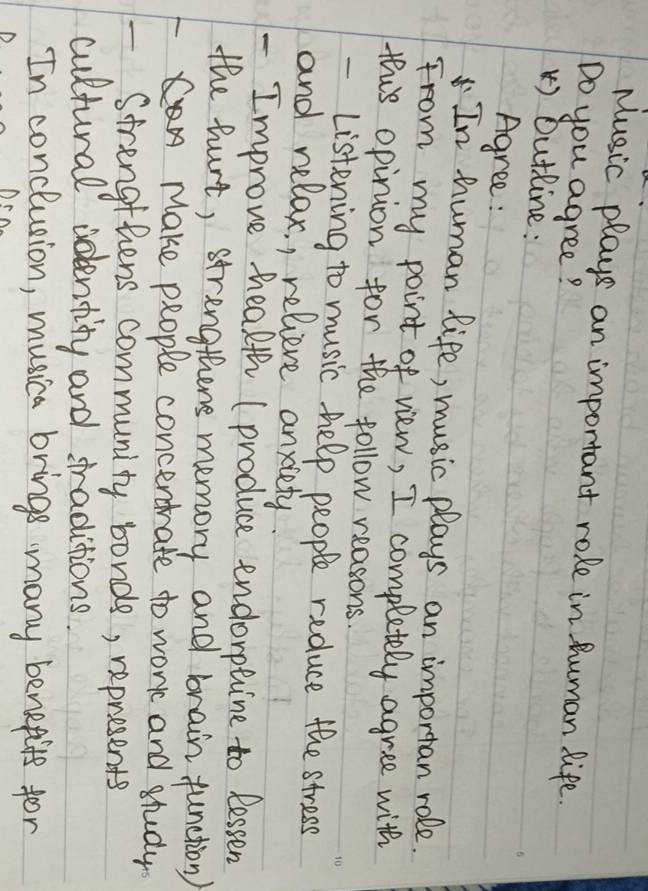 Music plays an important role in human life.
Do you agree?
*) Outline:
Agree:
* In human life, music plays an importan role.
From my point of view, I completely agree with
this opinion for the follow reasons.
- Listening to music help people reduce the stress
and relax, relieve anxiety
- Improve health (produce endorphine to lessen
the hurt, strengthens memory and brain function)
- Make people concentrate to work and study
- Strengthens community bonds, represents
cultural identity and traditions.
In conclusion, music brings many benefits for